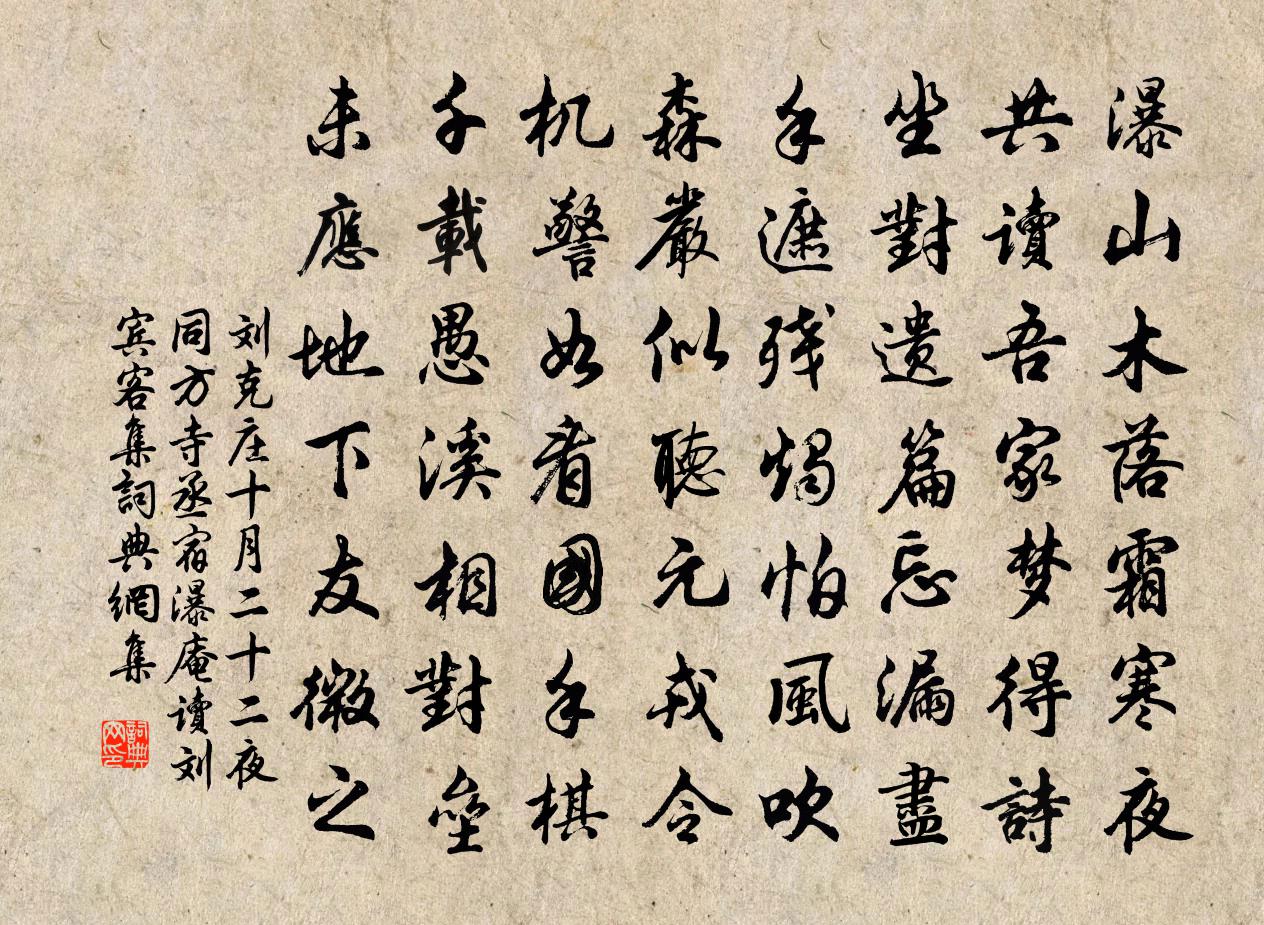 瀑山木落霜寒夜
共读吾家梦得詩
坐對遗篇忘漏盡
手遮残燭怕風吹
森嚴似聽元戎令
机警如看國手棋
千載愚溪相對壘
未應地下友微之
刘克庄十月二十二夜
同方寺丞宿瀑庵读刘
宾客集詞典網集
詞典網印